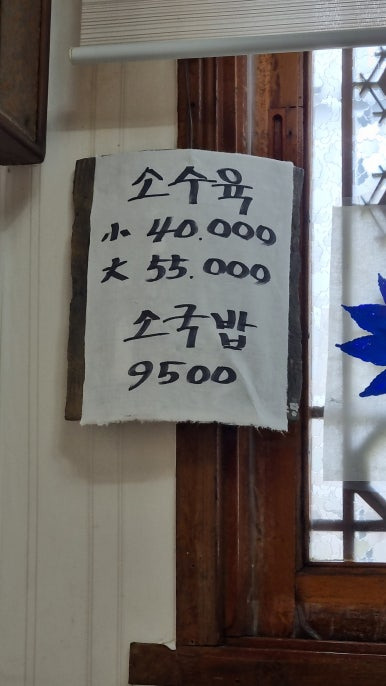 소수육
小 40.000
大 55.000
소국밥
9500